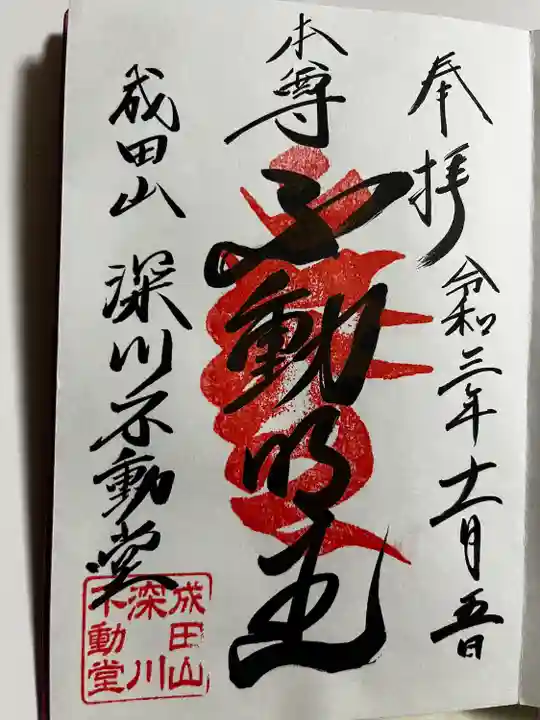 奉拝 令和三年十一月五日
本尊
不動明王
成田山 深川不動堂
成田山
深川
不動堂